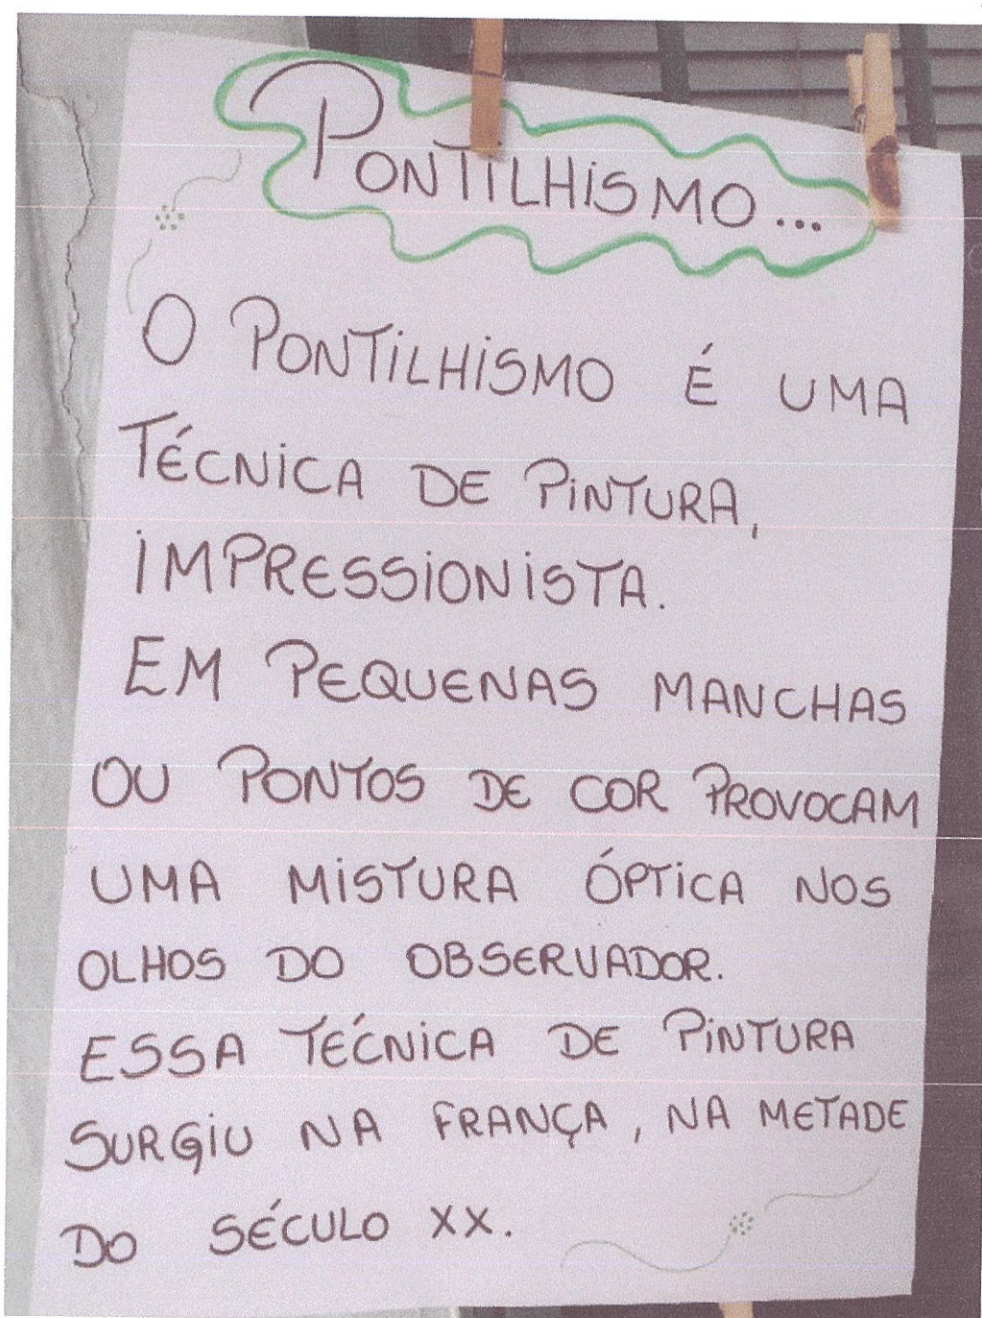 PONTILHISMO...
O PONTILHISMO É UMA
TÉCNICA DE PINTURA,
IMPRESSIONISTA.
EM PEQUENAS MANCHAS
OU PONTOS DE COR PROVOCAM
UMA MISTURA ÓPTICA NOS
OLHOS DO OBSERVADOR.
ESSA TÉCNICA DE PINTURA
SURGIU NA FRANÇA, NA METADE
DO SÉCULO XX.